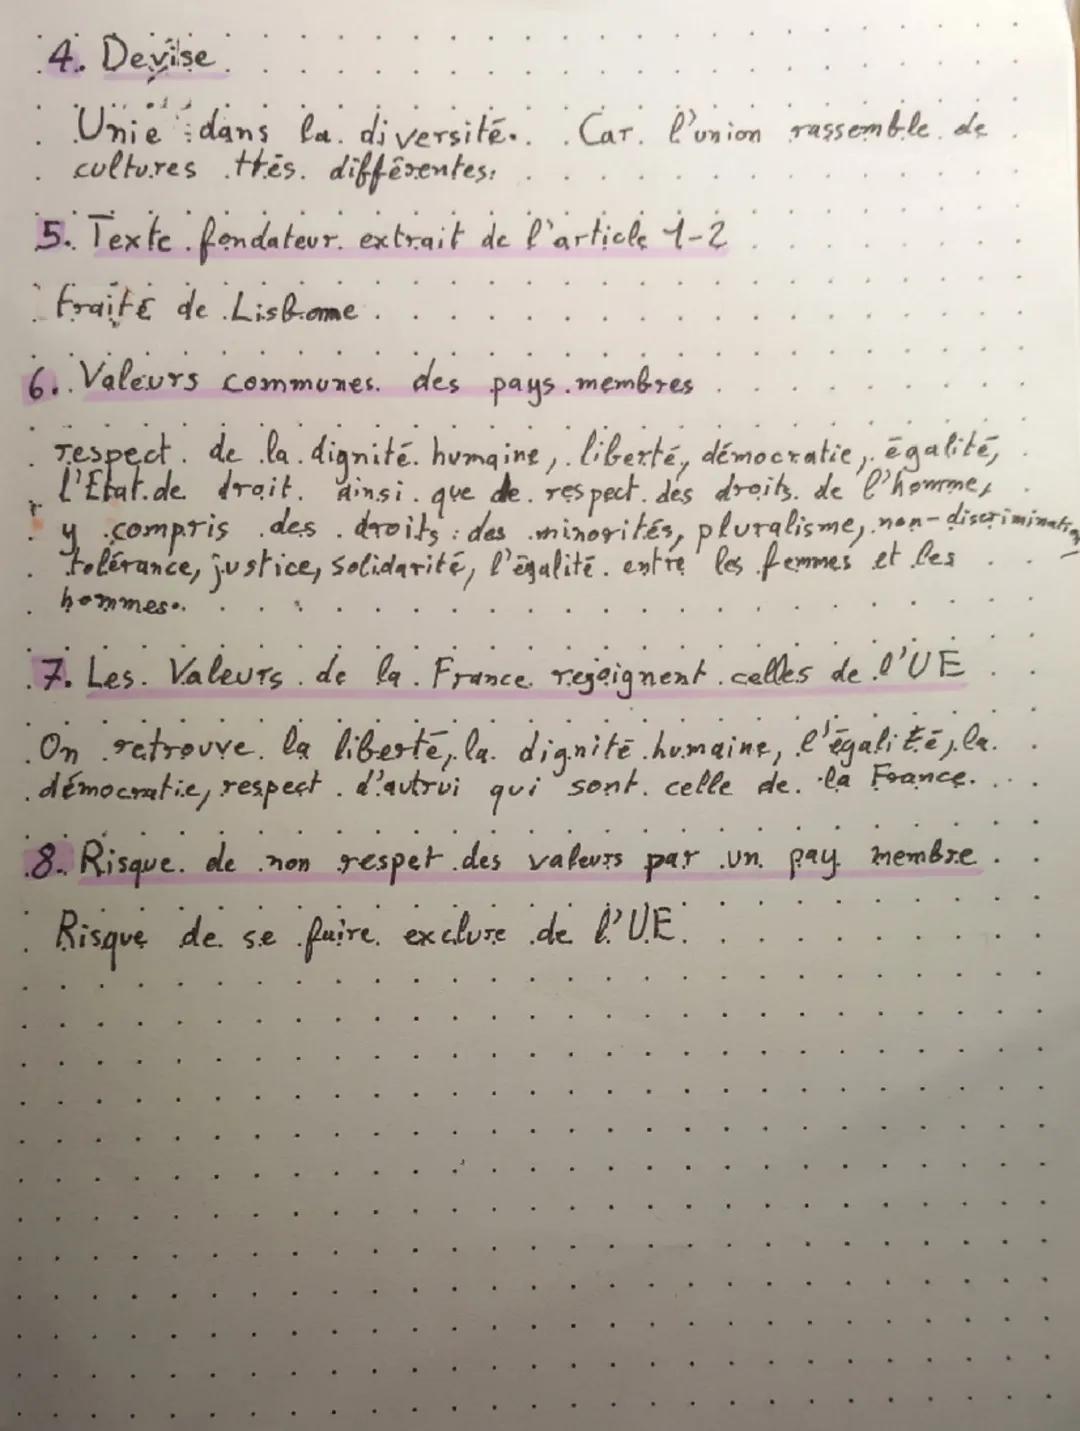 4. Devise
Unie dans la diversité. Car l'union rassemble de
cultures très différentes.
5. Texte fondateur extrait de l'article 1-2
traité de Lisbonne
6. Valeurs communes des pays membres
respect de la dignité humaine, liberté, démocratie, égalité,
l'Etat de droit ainsi que de respect des droits de l'homme,
y compris des droits des minorités, pluralisme, non-discrimination
tolérance, justice, solidarité, l'égalité entre les femmes et les
hommes.
7. Les Valeurs de la France rejoignent celles de l'UE
On retrouve la liberté, la dignité humaine, l'égalité, la
démocratie, respect d'autrui qui sont celle de la France.
8. Risque de non respet des valeurs par un pay membre
Risque de se faire exclure de l'UE.